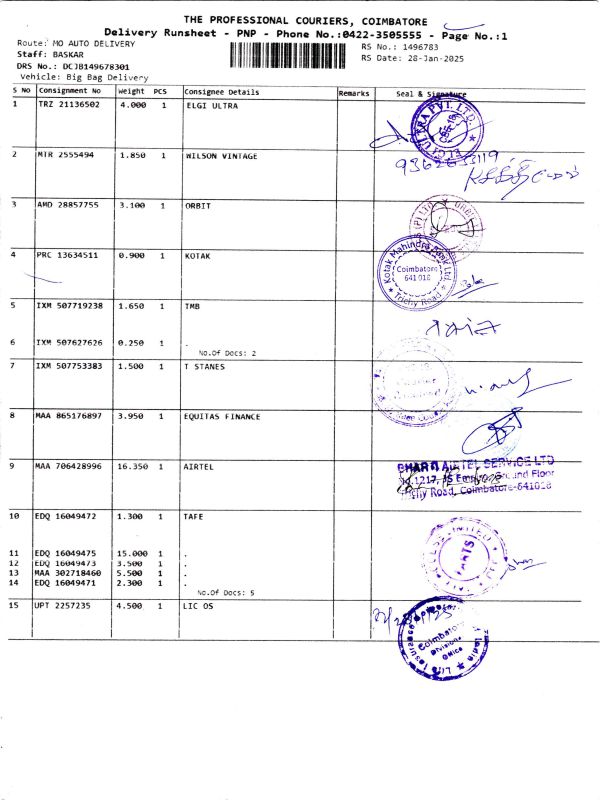 THE PROFESSIONAL COURIERS, COIMBATORE
Delivery Runsheet - PNP - Phone No.:0422-3505555 - Page No.:1
Route: MO AUTO DELIVERY
RS No.: 1496783
Staff: BASKAR
RS Date: 28-Jan-2025
DRS No.: DCJB149678301
Vehicle: Big Bag Delivery
S No Consignment No Weight PCS Consignee Details Remarks Seal & Signature
1 TRZ 21136502 4.000 1 ELGI ULTRA
ELGI ULTRA PVT. LTD.
2 MTR 2555494 1.850 1 WILSON VINTAGE
3 AMD 28857755 3.100 1 ORBIT
4 PRC 13634511 0.900 1 KOTAK
Kotak Mahindra Bank Ltd.
Coimbatore
641 018
Trichy Road
5 IXM 507719238 1.650 1 TMB
6 IXM 507627626 0.250 1 .
No.Of Docs: 2
7 IXM 507753383 1.500 1 T STANES
8 MAA 865176897 3.950 1 EQUITAS FINANCE
9 MAA 706428996 16.350 1 AIRTEL
BHARTI AIRTEL SERVICE LTD
Ground Floor
Trichy Road, Coimbatore-641018
10 EDQ 16049472 1.300 1 TAFE
11 EDQ 16049475 15.000 1 .
12 EDQ 16049473 3.500 1 .
13 MAA 302718460 5.500 1 .
14 EDQ 16049471 2.300 1 .
No.Of Docs: 5
15 UPT 2257235 4.500 1 LIC OS
Coimbatore
Divisional
Office